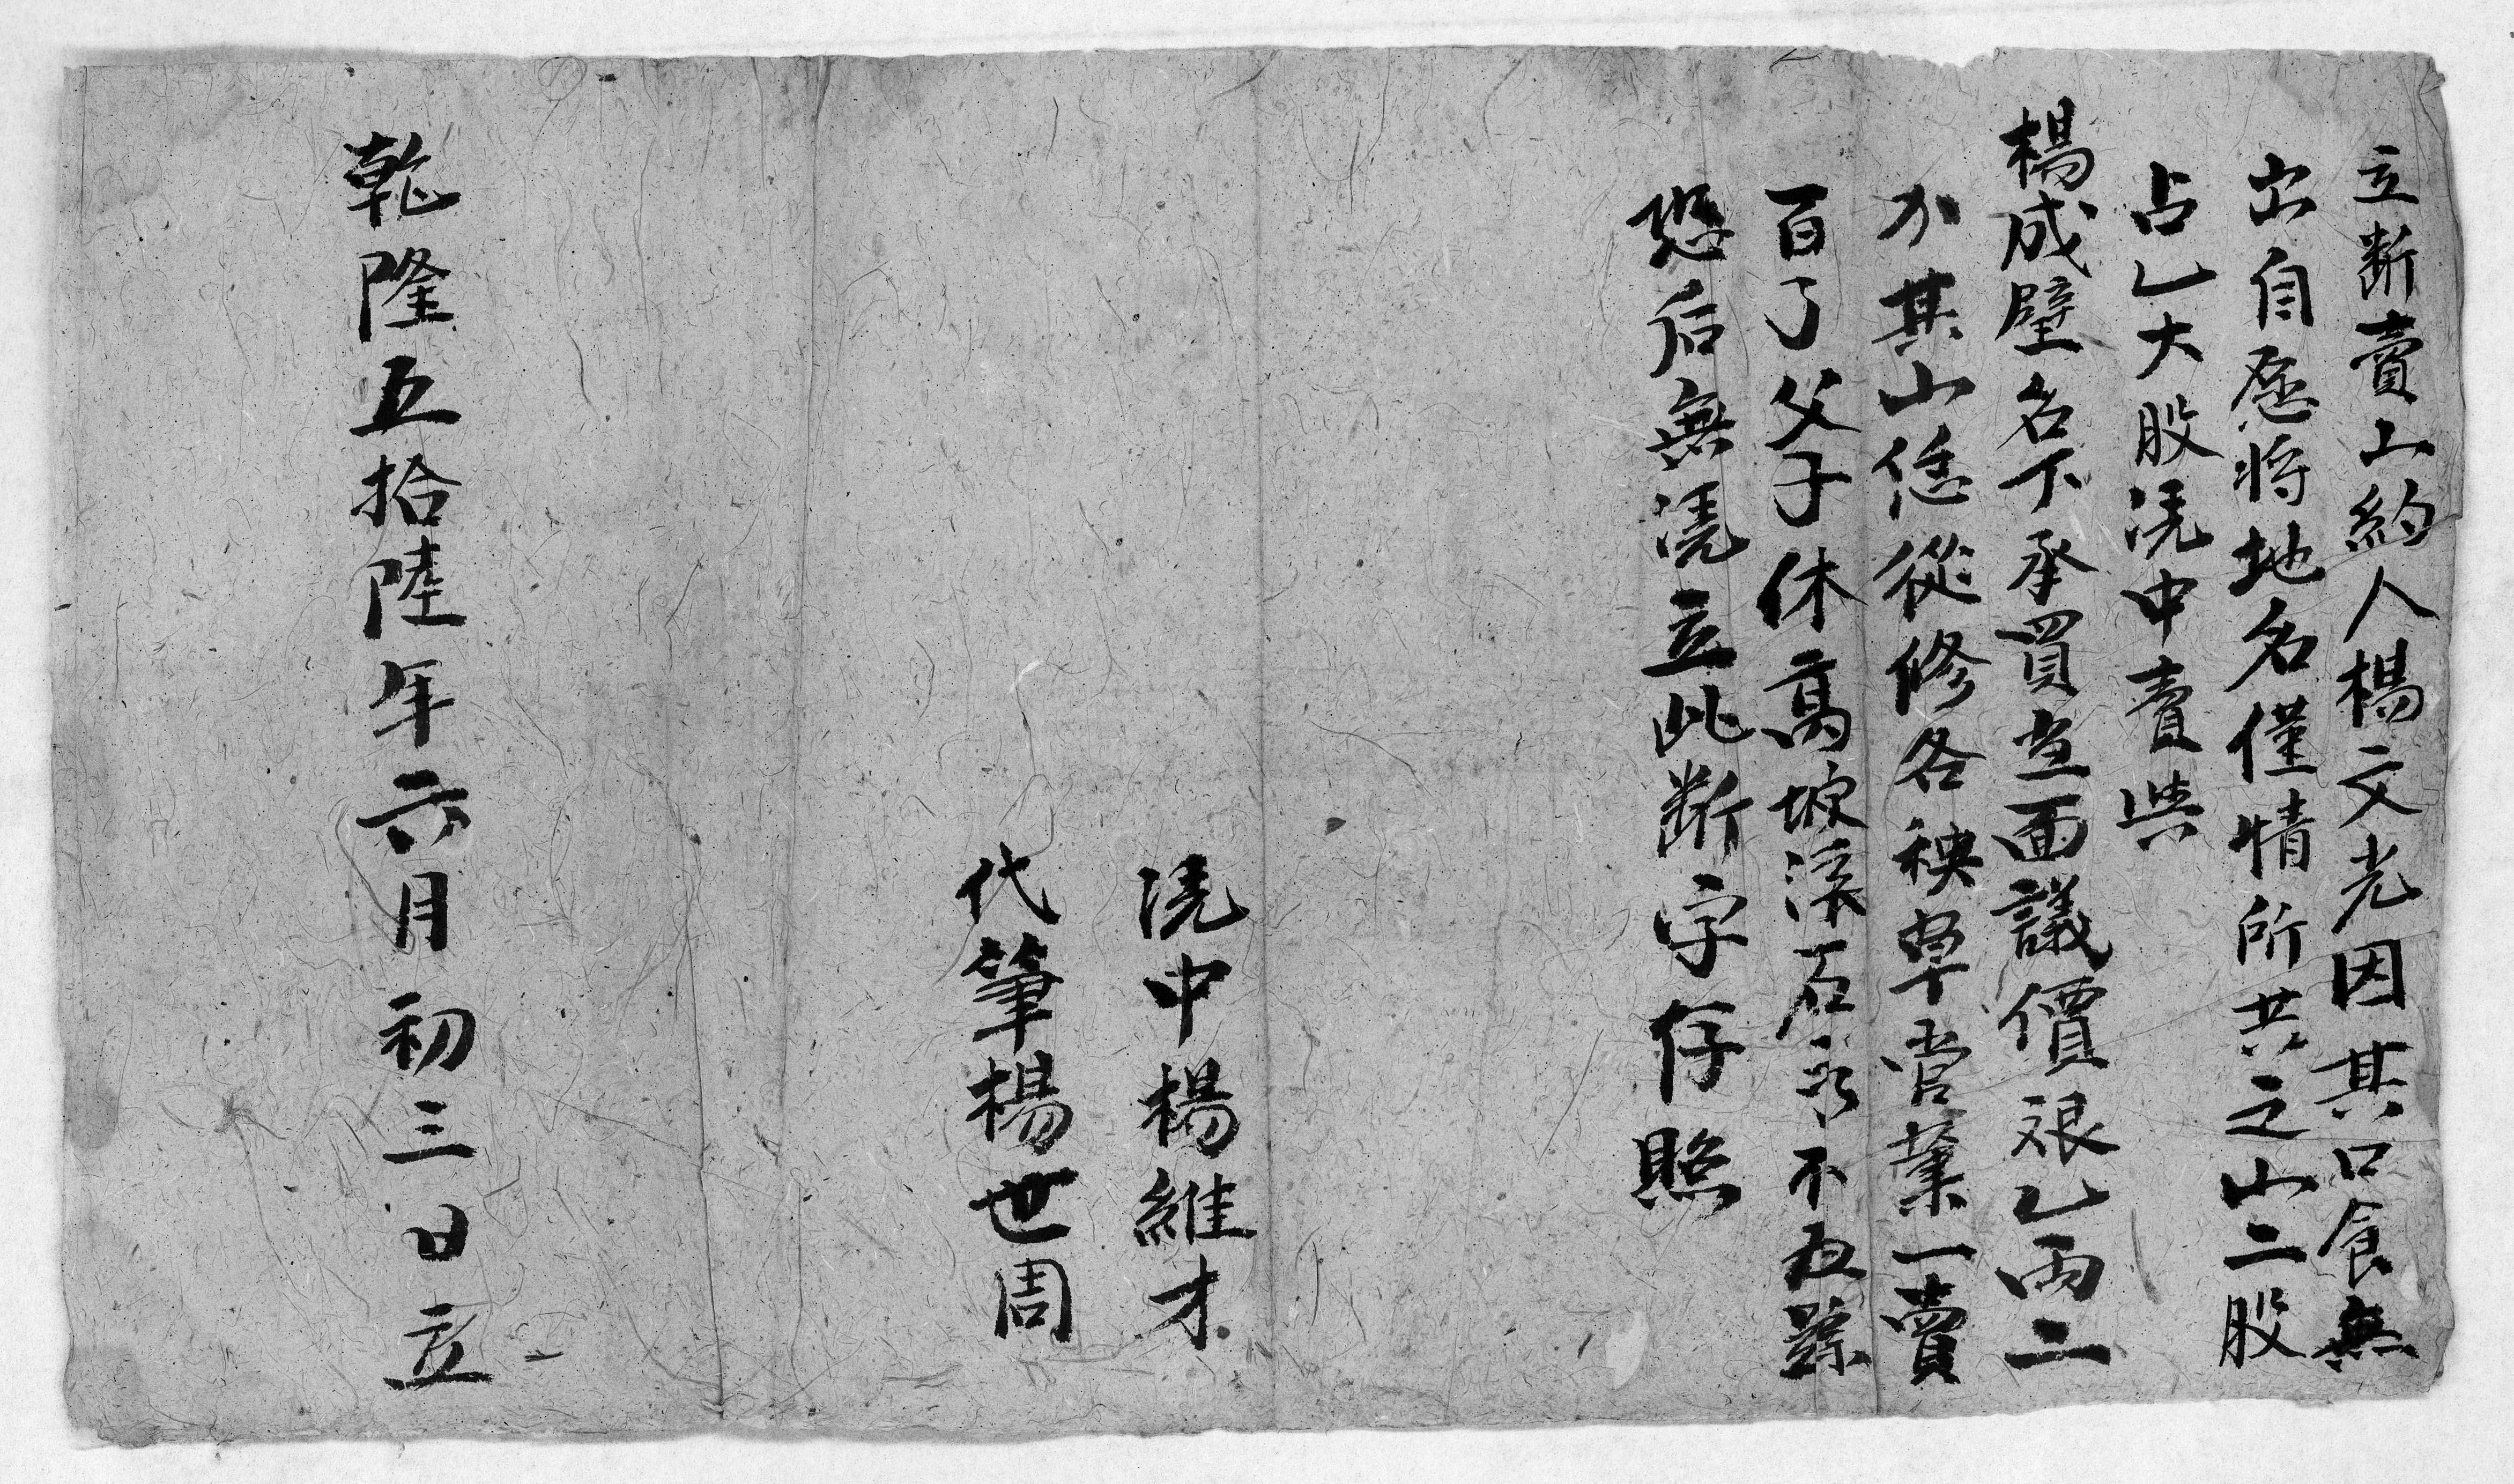 立断賣山約人楊文光因其口食無
出自愿将地名僅情所共之山二股
占乙大股凴中賣與
楊成璧名下承買当面議價艮乙両二
分其山恁從修各秧草當業一賣
百了父子休高坡滚石永不敢
恐后無凴立此断字存照
凴中楊維才
代筆楊世周
乾隆五拾陸年六月初三日立